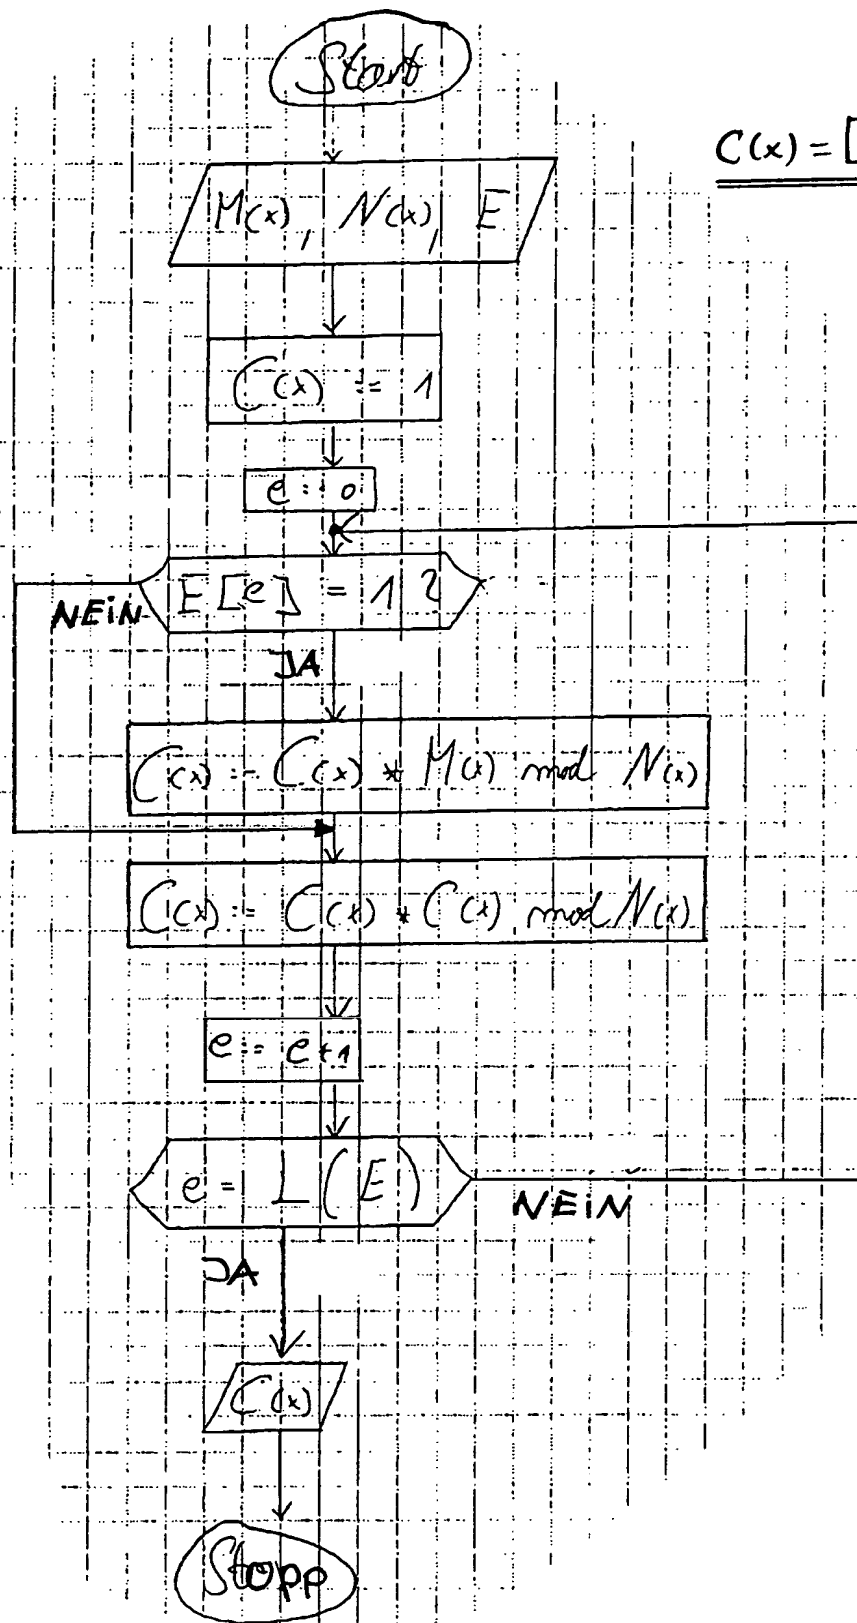 Start
C(x) = [
M(x), N(x), E
C(x) := 1
e := 0
E[e] = 1 ?
NEiN
JA
C(x) := C(x) * M(x) mod N(x)
C(x) := C(x) * C(x) mod N(x)
e := e+1
e = L(E)
NEiN
JA
C(x)
Stopp